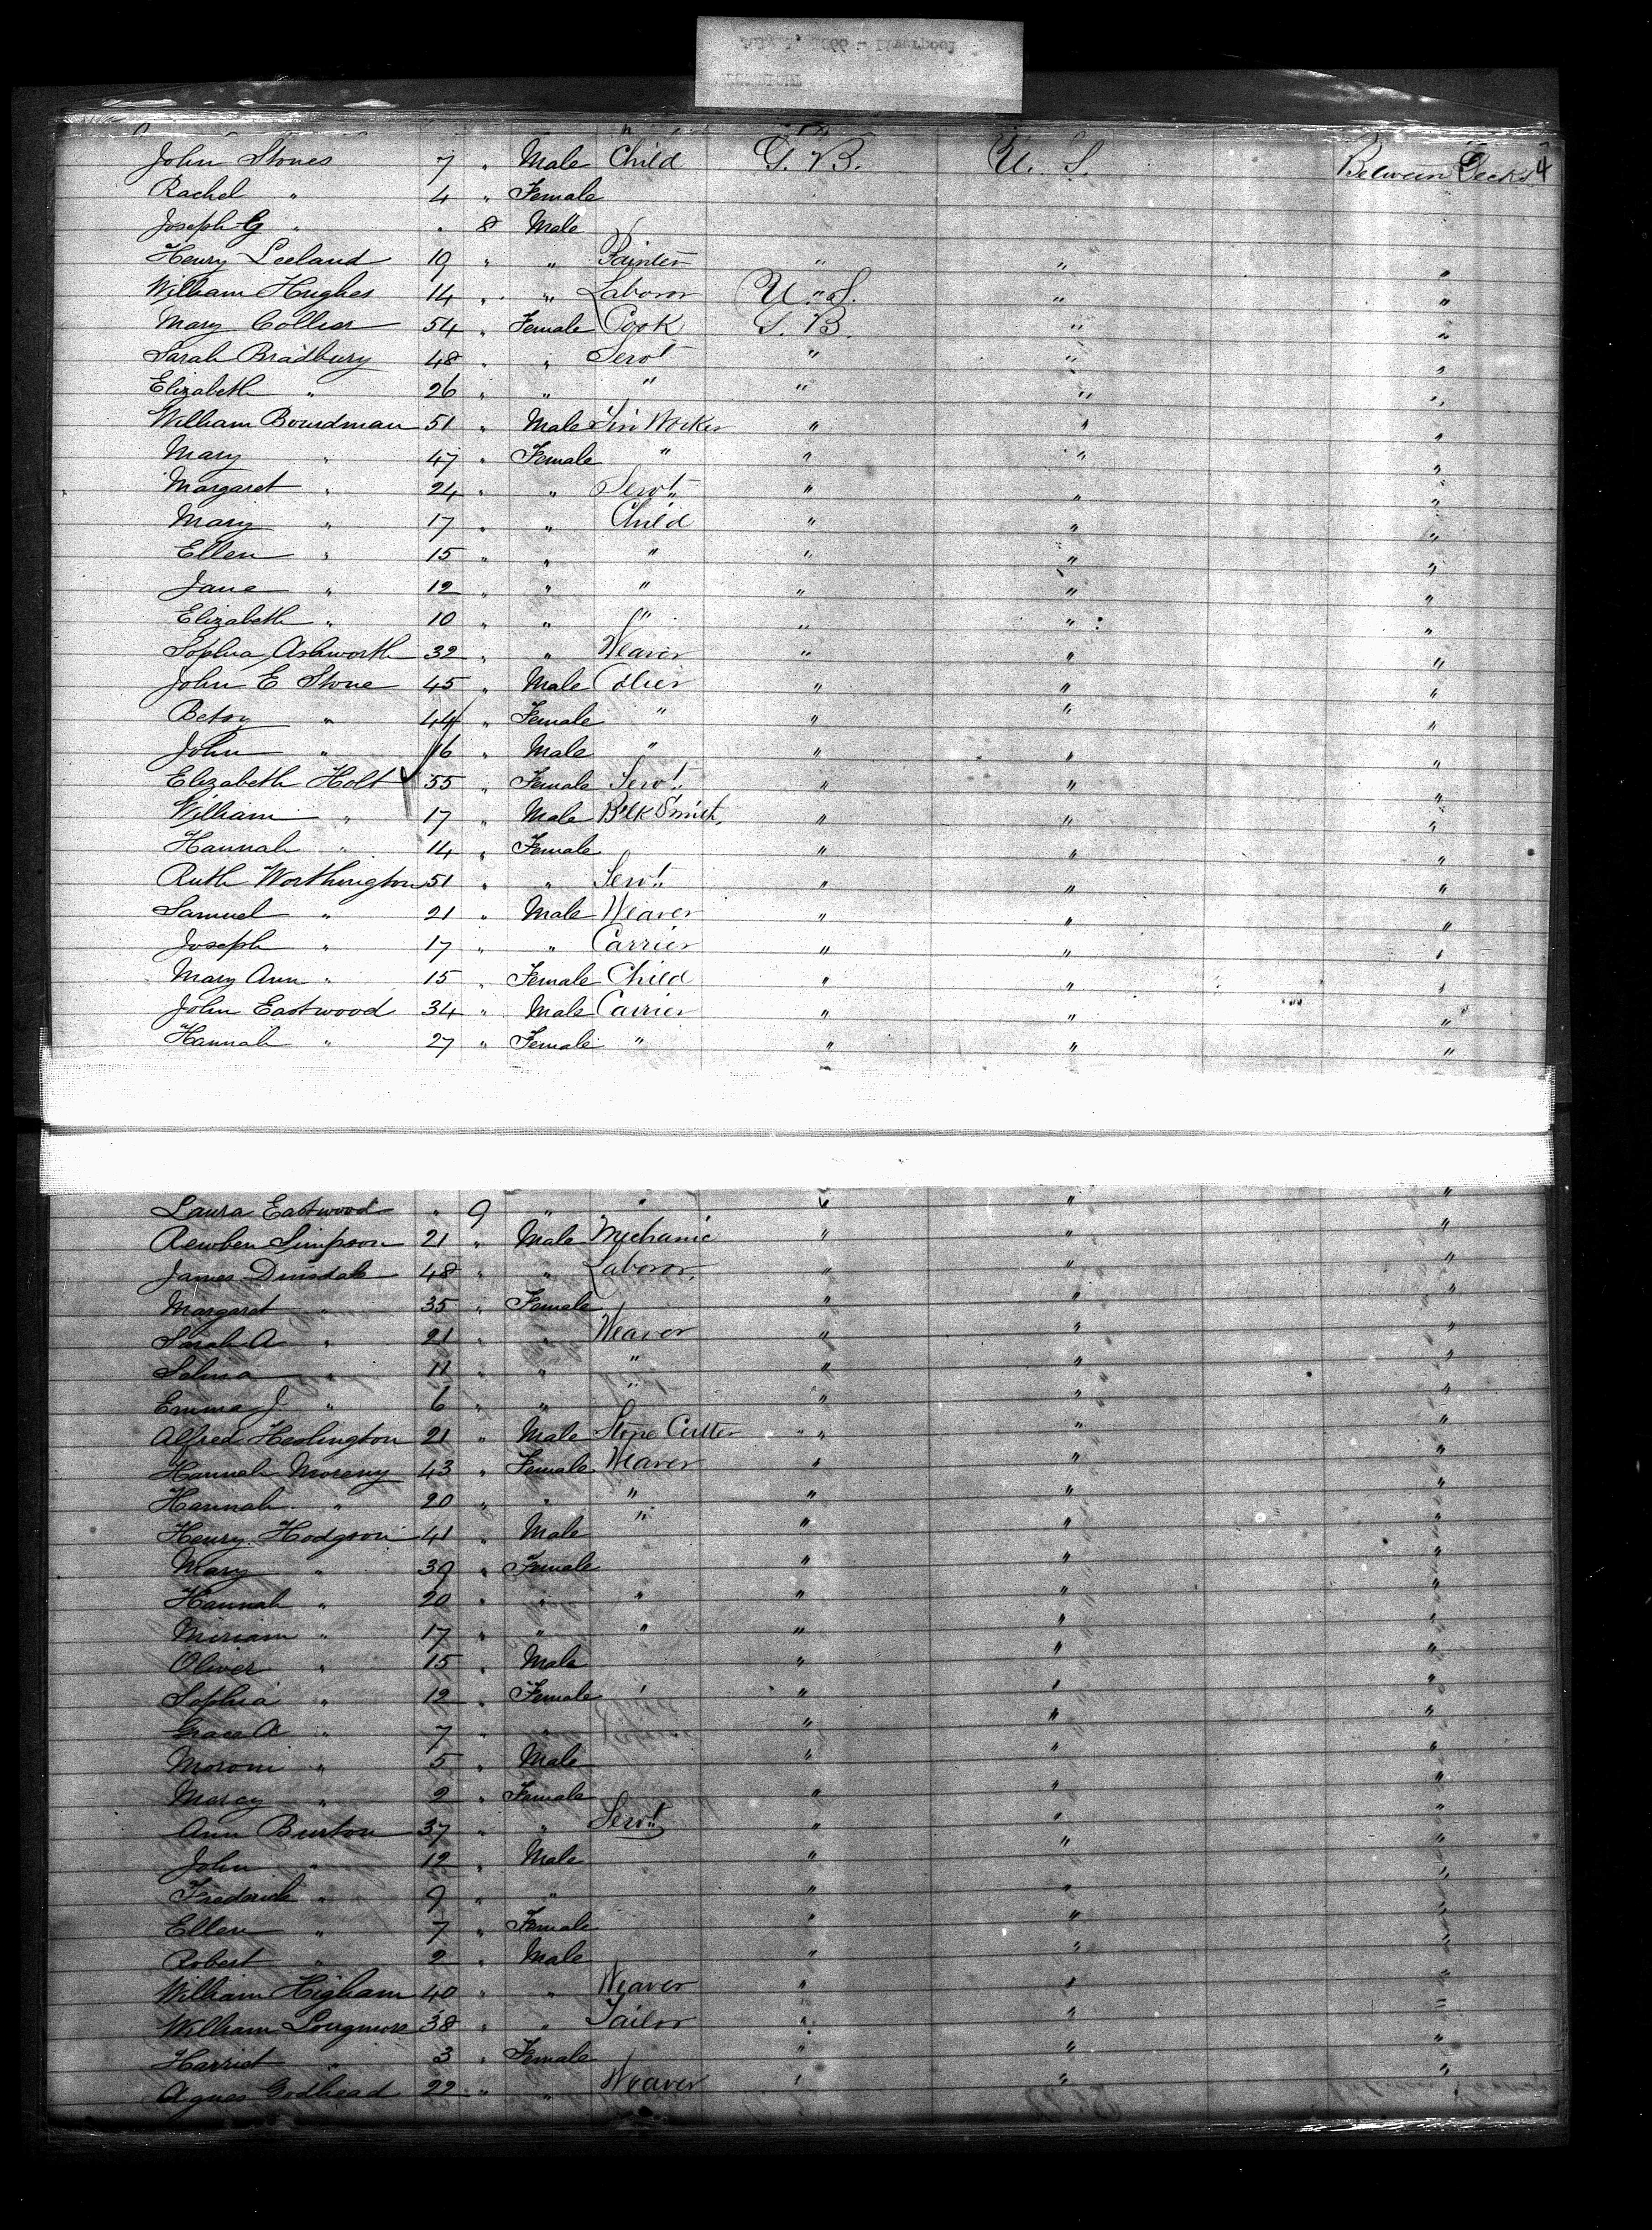 July 1, 1866 - Liverpool
John Stones 7 " Male Child G. B. U. S. Between Decks 4
Rachel " 4 " Female
Joseph G " " 8 Male
Henry Leeland 19 " " Painter " " "
William Hughes 14 " " Laboror U. S. " "
Mary Collier 54 " Female Cook G. B. " "
Sarah Bradbury 48 " " Servt " " "
Elizabeth " 26 " " " " " "
William Bourdman 51 " Male Tin Worker " " "
Mary " 47 " Female " " " "
Margaret " 24 " " Servt " " "
Mary " 17 " " Child " " "
Ellen " 15 " " " " " "
Jane " 12 " " " " " "
Elizabeth " 10 " " " " " "
Sophia Ashworth 32 " " Weaver " " "
John E Stone 45 " Male Collier " " "
Betsy " 44 " Female " " " "
John " 16 " Male " " " "
Elizabeth Holt 55 " Female Servt " " "
William " 17 " Male Blk Smith " " "
Hannah " 14 " Female " " "
Ruth Worthington 51 " " Servt " " "
Samuel " 21 " Male Weaver " " "
Joseph " 17 " " Carrier " " "
Mary Ann " 15 " Female Child " " "
John Eastwood 34 " Male Carrier " " "
Hannah " 27 " Female " " " "
Laura Eastwood " 9 " " " " "
Rewben Simpson 21 " Male Mechanic " " "
James Dinsdale 48 " " Laboror " " "
Margaret " 35 " Female " " "
Sarah A " 21 " " Weaver " " "
Selina " 11 " " " " " "
Emma J " 6 " " " " " "
Alfred Heslington 21 " Male Stone Cutter " " "
Hannah 43 " Female Weaver " " "
Hannah " 20 " " " " " "
Henry Hodgson 41 " Male " " " "
Mary " 39 " Female " " "
Hannah " 20 " " " " " "
Miriam " 17 " " " " " "
Oliver " 15 " Male " " "
Sophia " 12 " Female " " " "
Grace A " 7 " " " " "
Moroni " 5 " Male " " "
Marcy " 2 " Female " " "
Ann Burton 37 " " Servt " " "
John " 12 " Male " " "
Frederick " 9 " " " " "
Ellen " 7 " Female " " "
Robert " 2 " Male " " "
William Higham 40 " " Weaver " " "
William Longmore 38 " " Tailor " " "
Harriet " 3 " Female " " "
Agnes Godhead 22 " " Weaver " " "